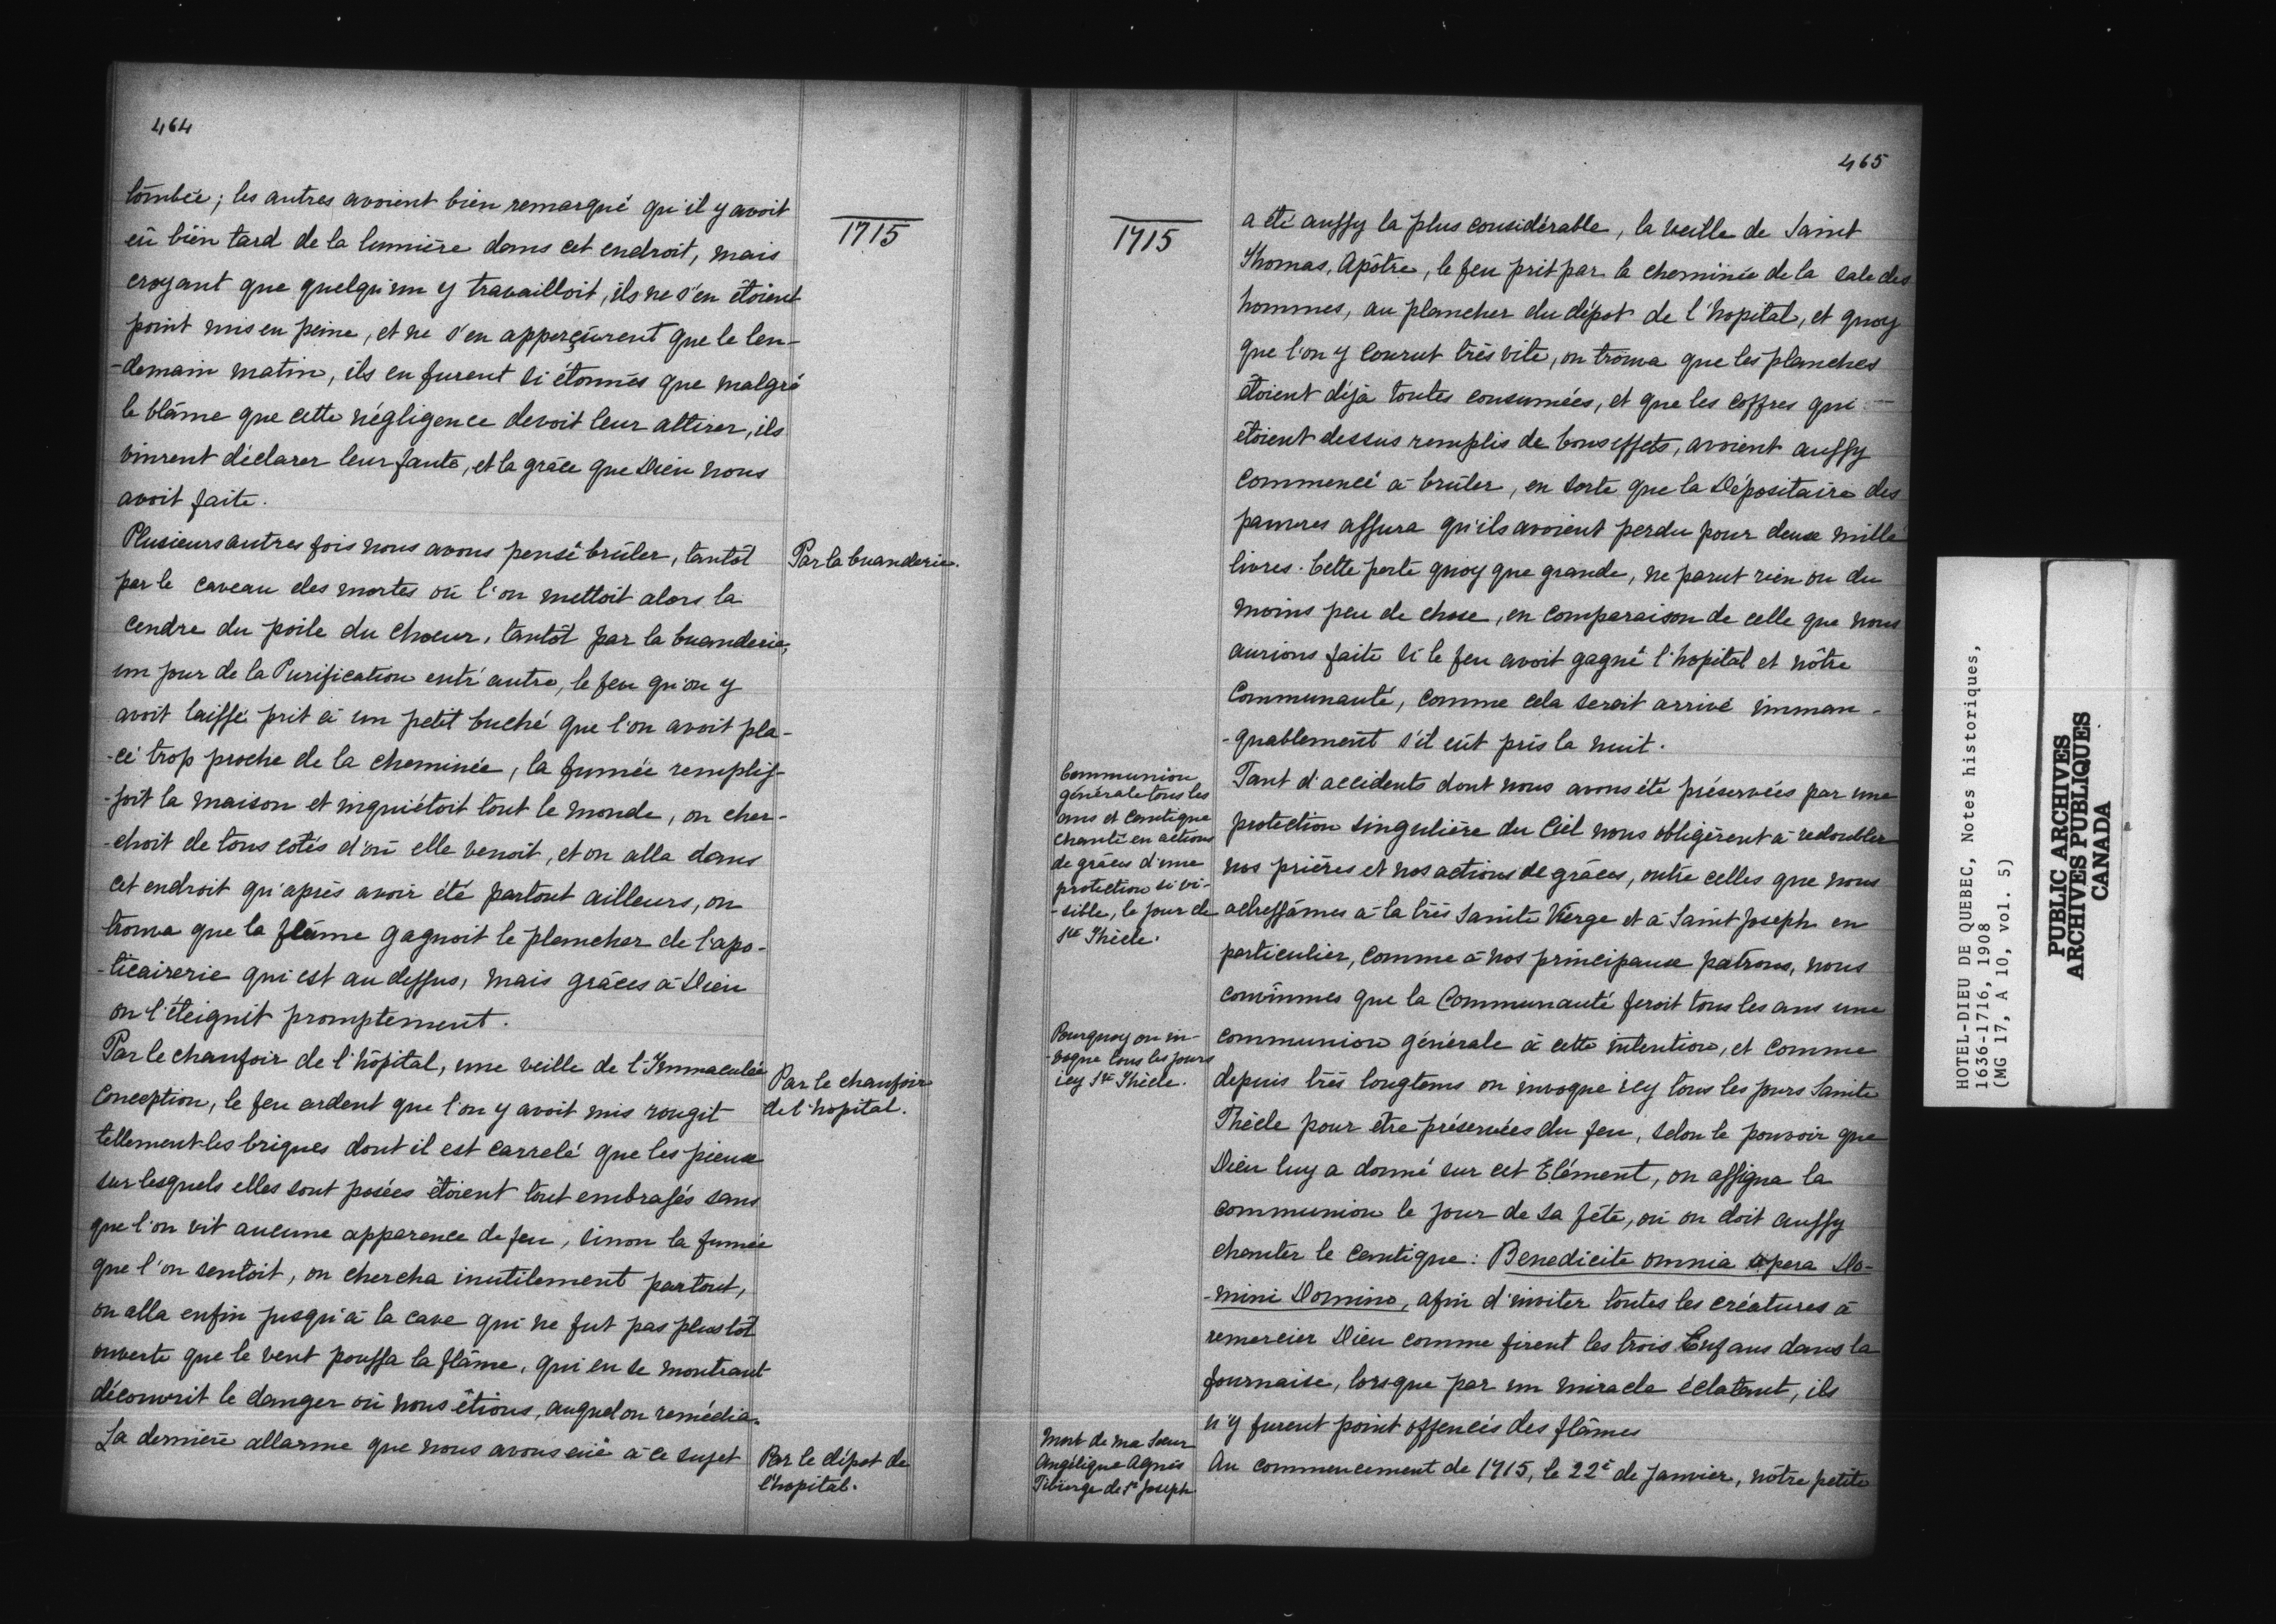 464
1715
tombée; les autres avoient bien remarqué qu'il y avoit
eü bien tard de la lumière dans cet endroit, mais
croyant que quelqu'un y travailloit, ils ne s'en étoient
point mis en peine, et ne s'en apperçûrent que le len-
-demain matin, ils en furent si étonnés que malgré
le blâme que cette négligence devoit leur attirer, ils
vinrent déclarer leur faute, et la grâce que Dieu nous
avoit faite.
Plusieurs autres fois nous avons pensé brûler, tantôt
Par la buanderie.
par le caveau des mortes où l'on mettoit alors la
cendre du poile du choeur, tantôt par la buanderie,
un jour de la Purification entr'autre, le feu qu'on y
avoit laissé prit à un petit buché que l'on avoit pla-
-cé trop proche de la cheminée, la fumée remplis-
-soit la maison et inquiétoit tout le monde, on cher-
-choit de tous cotés d'où elle venoit, et on alla dans
cet endroit qu'après avoir été partout ailleurs, on
trouva que la flâme gagnoit le plancher de l'apo-
-ticairerie qui est au dessus, mais grâces à Dieu
on l'éteignit promptement.
Par le chaufoir de l'hôpital, une veille de l'Immaculée
Par le chaufoir
de l'hopital.
Conception, le feu ardent que l'on y avoit mis rougit
tellement les briques dont il est carrelé que les pieux
sur lesquels elles sont posées étoient tout embrasés sans
que l'on vit aucune apparence de feu, sinon la fumée
que l'on sentoit, on chercha inutilement partout,
on alla enfin jusqu'à la cave qui ne fut pas plus tôt
ouverte que le vent poussa la flâme, qui en se montrant
découvrit le danger où nous étions, auquel on remédia.
La dernière allarme que nous avons eüe à ce sujet
Par le dépot de
l'hopital.
465
1715
a été aussy la plus considérable, la veille de Saint
Thomas, Apôtre, le feu prit par la cheminée de la sale des
hommes, au plancher du dépot de l'hopital, et quoy
que l'on y courut très vite, on trouva que les planches
étoient déjà toutes consumées, et que les coffres qui
étoient dessus remplis de bons effets, avoient aussy
commencé à brûler, en sorte que la Dépositaire des
pauvres assura qu'ils avoient perdu pour deux mille
livres. Cette perte quoy que grande, ne parut rien ou du
moins peu de chose, en comparaison de celle que nous
aurions faite si le feu avoit gagné l'hopital et nôtre
Communauté, comme cela seroit arrivé imman-
-quablement s'il eût pris la nuit.
Communion
générale tous les
ans et cantique
chanté en actions
de grâces d'une
protection si vi-
-sible, le jour de
Ste Thècle.
Tant d'accidents dont nous avons été préservées par une
protection singulière du Ciel nous obligèrent à redoubler
nos prières et nos actions de grâces, outre celles que nous
adressâmes à la très Sainte Vierge et à Saint Joseph en
particulier, comme à nos principaux patrons, nous
convinmes que la Communauté feroit tous les ans une
communion générale à cette intention, et comme
Pourquoy on in-
-voque tous les jours
icy Ste Thècle.
depuis très longtems on invoque icy tous les jours Sainte
Thècle pour être préservées du feu, selon le pouvoir que
Dieu luy a donné sur cet Elément, on assigna la
communion le jour de sa fête, où on doit aussy
chanter le cantique: Benedicite omnia opera Do-
-mini Domino, afin d'inviter toutes les créatures à
remercier Dieu comme firent les trois Enfans dans la
fournaise, lorsque par un miracle éclatant, ils
n'y furent point offencés des flâmes
Mort de ma Soeur
Angélique Agnès
Tibierge de St Joseph
Au commencement de 1715, le 22e de Janvier, nôtre petite
HOTEL-DIEU DE QUEBEC, Notes historiques,
1636-1716, 1908
(MG 17, A 10, vol. 5)
PUBLIC ARCHIVES
ARCHIVES PUBLIQUES
CANADA